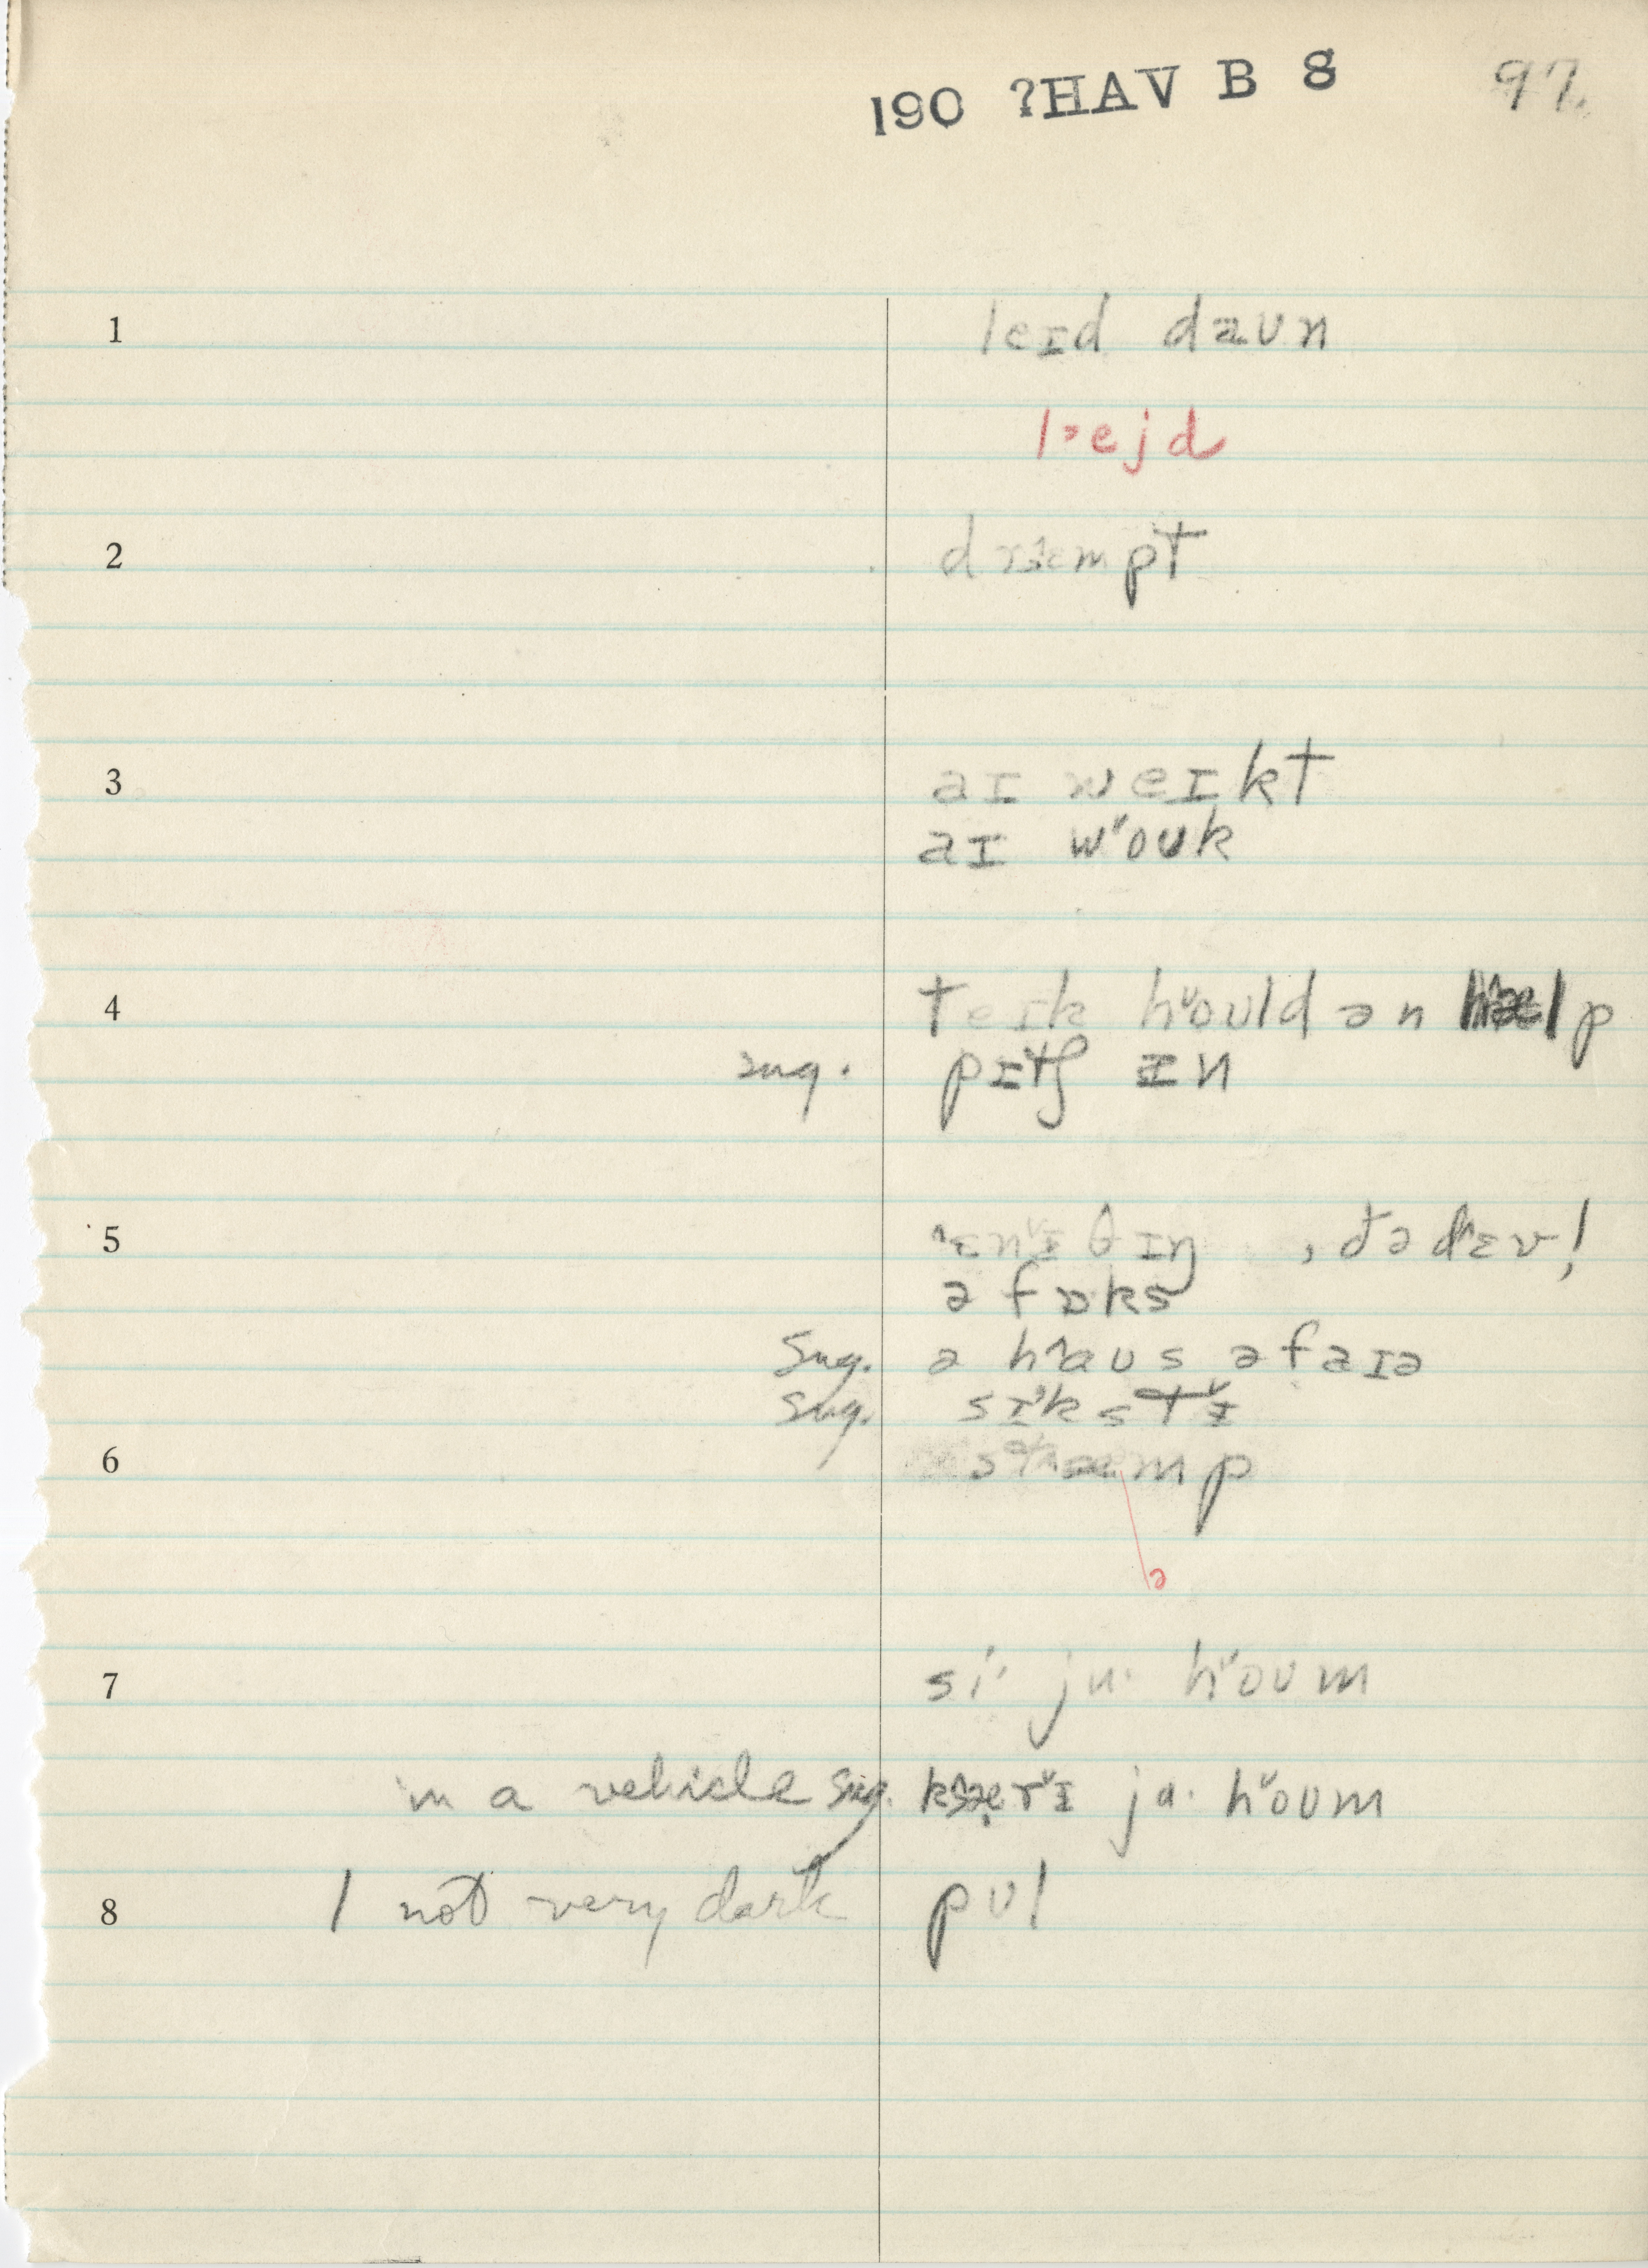 190 ?HAV B 8 97.
1 leɪd daʊn
l˃ejd
2 drɛmpt
3 aɪ weɪkt
aɪ w˅oʊk
4 teɪk h˅oʊld ən lp
sug. pɪtʃ ɪn
5 ˄ɛn˅ɪθɪŋ , də d˄ɛv!
ə fɒks
Sug. ə h˄aʊs əfaɪə
Sug. sɪ˅kst˅ɪ
6 mp
ə
7 si· ju· h˅oʊm
in a vehicle Sug. r˅ɪ ja· h˅oʊm
8 1 not very dark pʊl